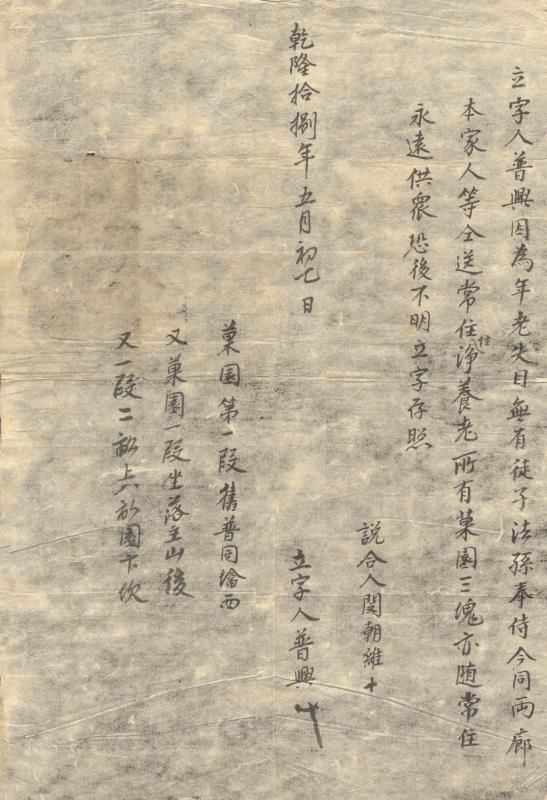 立字人普興因為年老失目無有徒子法孫奉侍今同両廊
本家人等仝送常住淨養老所有菓園三塊亦随常住
住
永遠供眾恐後不明立字存照
説合人関朝維十
乾隆拾捌年五月初七日
立字人普興
菓園第一段舊普同墖西
又菓園一段坐落主山後
又一段二畝上六於園下坎